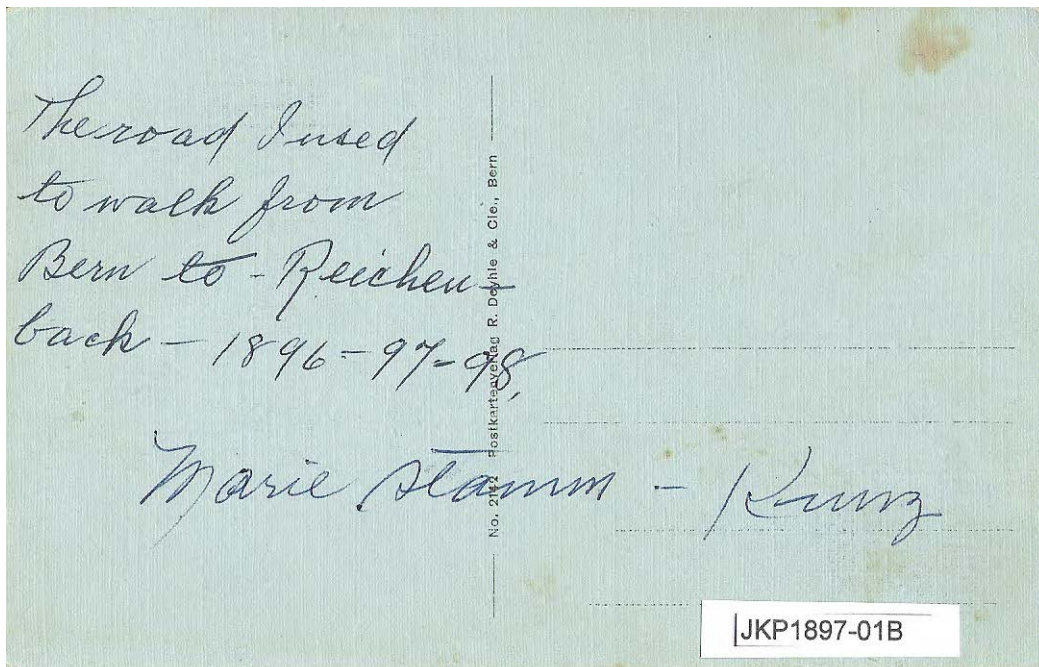 The road I used
to walk from
Bern to - Reichen-
back - 1896-97-98,
Marie Stamm - Kunz
No. 2142 Postkartenverlag R. Deyhle & Cie., Bern
JKP1897-01B